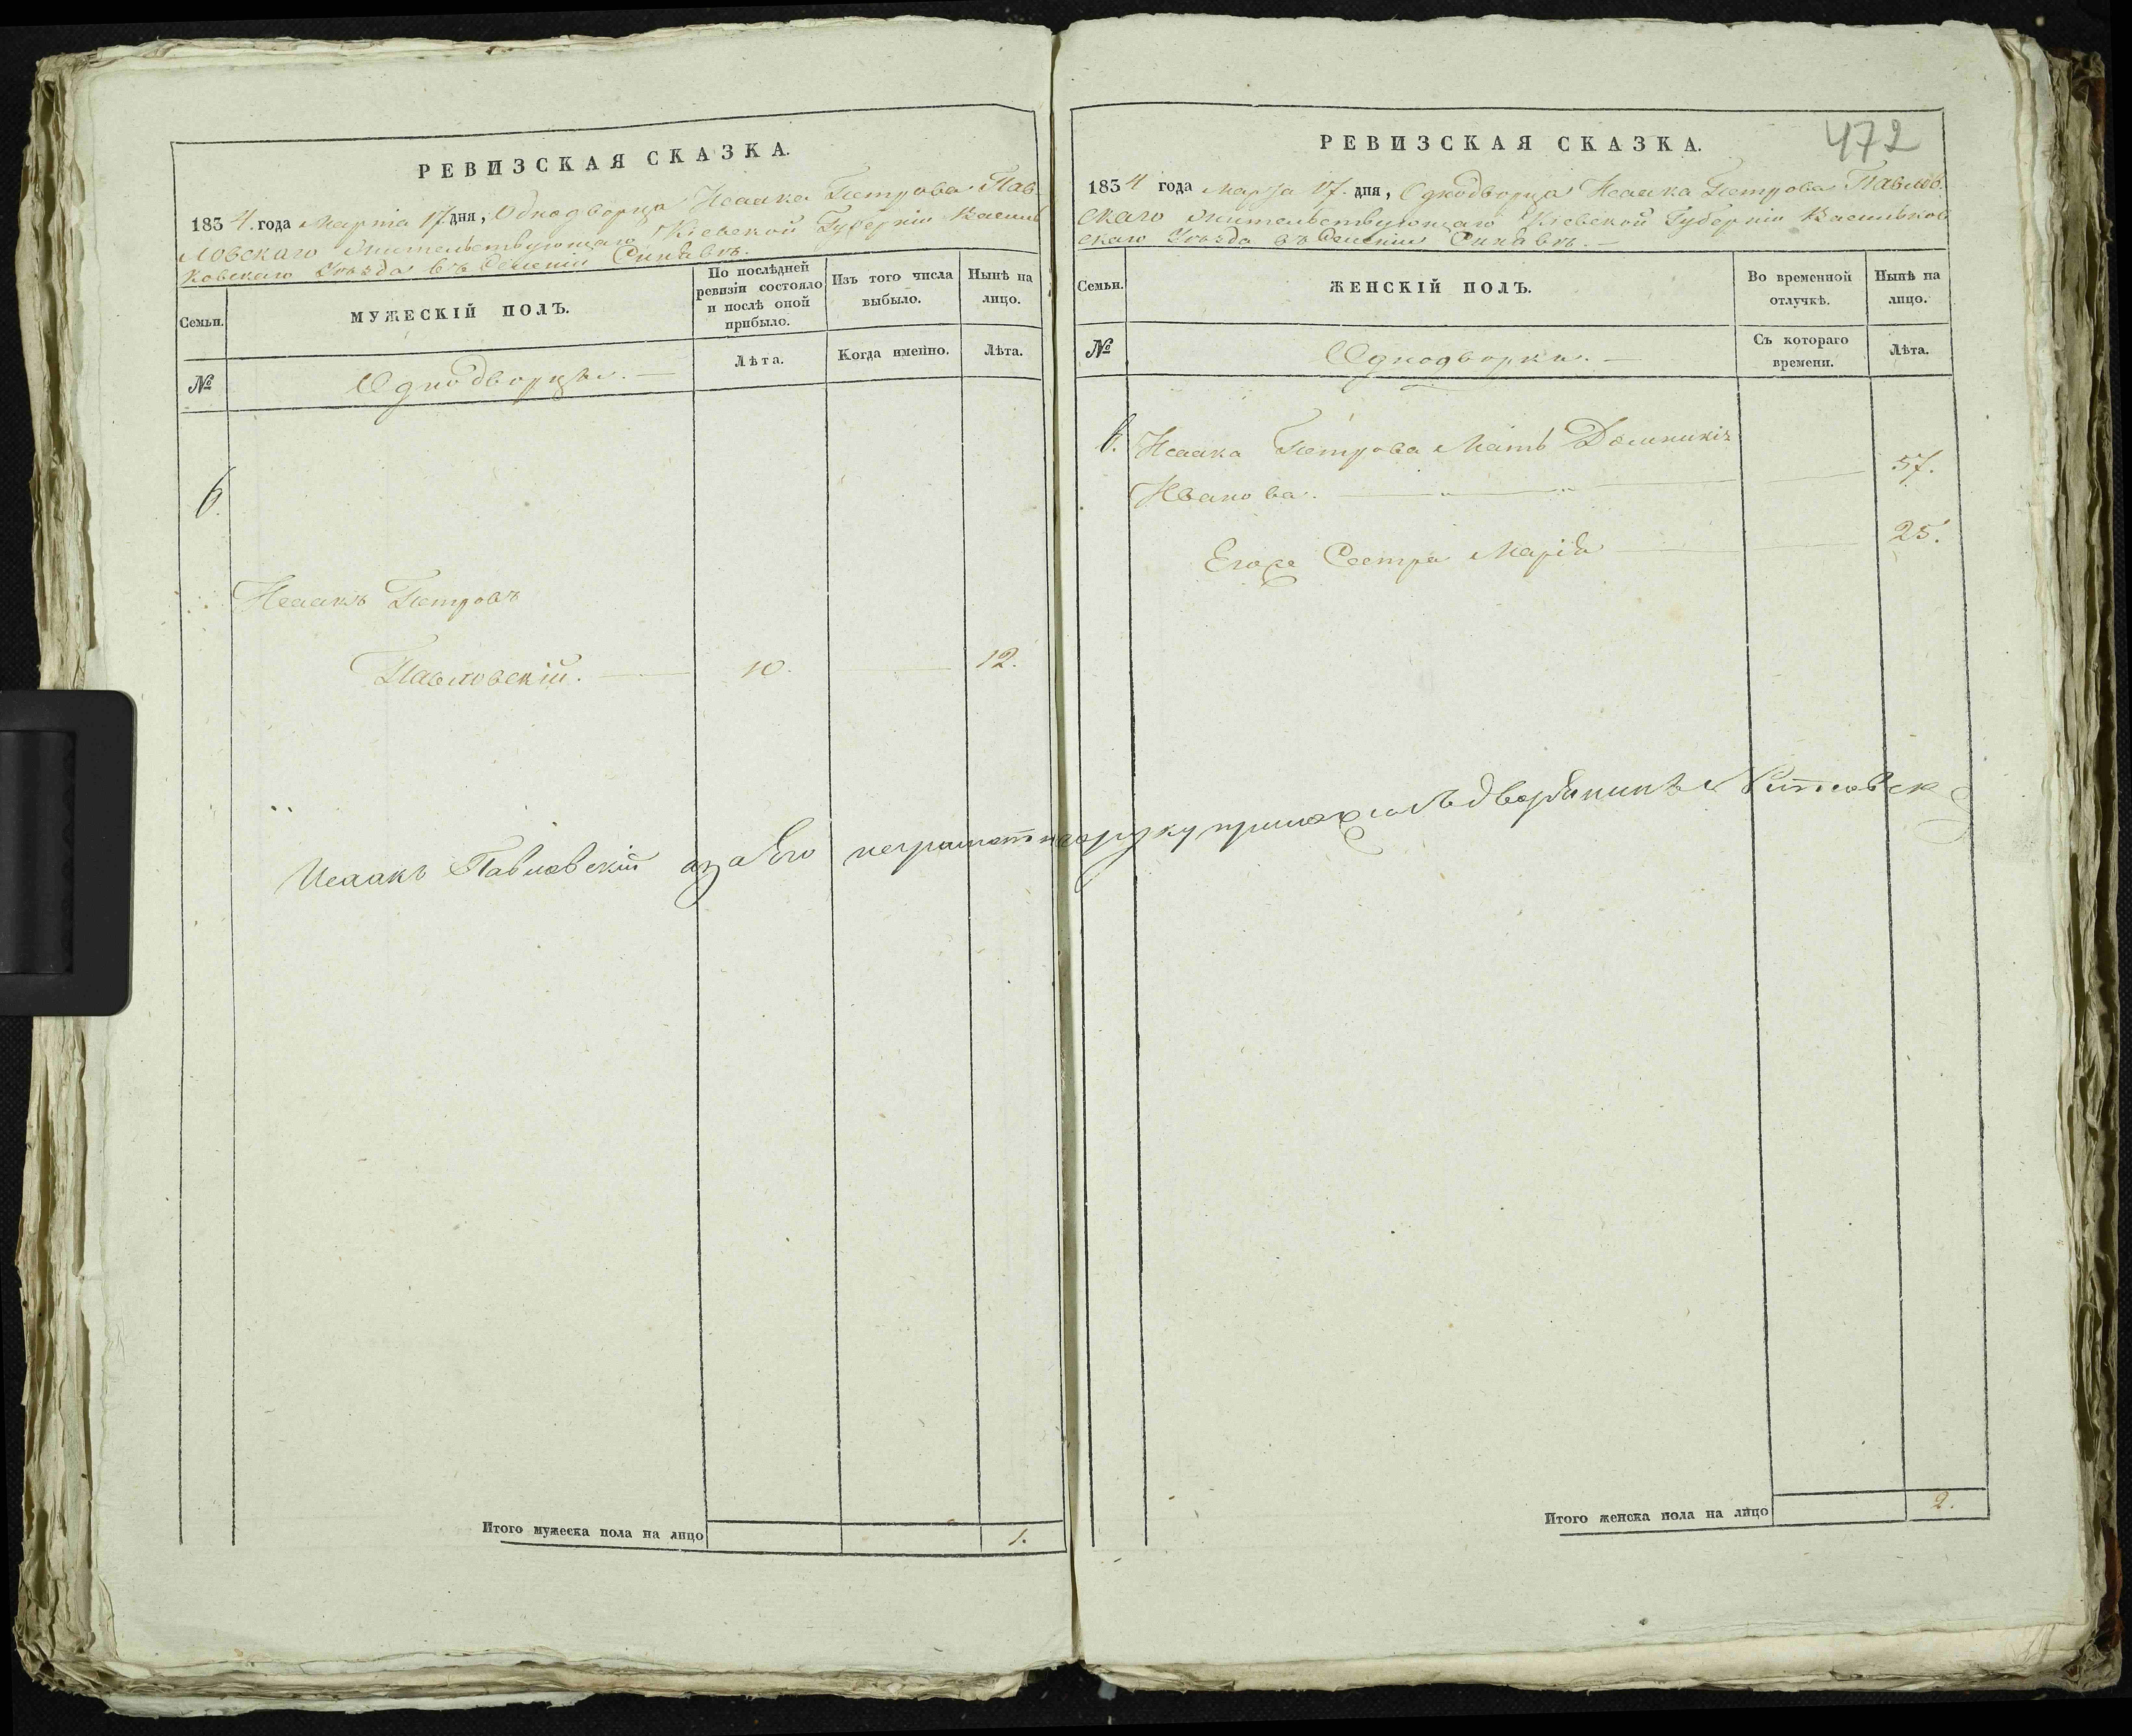 РЕВИЗСКАЯ СКАЗКА.
1834. года Марта 17. дня, Однодворца Исаака Петрова Пав-
ловскаго жительствующаго Кіевской Губерніи Василь
ковскаго Уѣзда въ селеніи Синявѣ.
Семьи.
МУЖЕСКІЙ ПОЛЪ.
По послѣдней ревизіи состояло и послѣ оной прибыло.
Изъ того числа выбыло.
Нынѣ на лицо.
№
Однодворцы. —
Лѣта.
Когда именно.
Лѣта.
6.
Исаакъ Петровъ
Павловскій. — 10. — 12.
Исаакъ Павловскій азаЕго неграмотнаоруку приложилъ дворянинъ
Итого мужеска пола на лицо 1.
472
РЕВИЗСКАЯ СКАЗКА.
1834 года Марта 17. дня, Однодворца Исаака Петрова Павлов.
скаго жительствующаго Кіевской Губерніи Васильков
скаго Уѣзда въ селеніи Синявѣ. —
Семьи.
ЖЕНСКІЙ ПОЛЪ.
Во временной отлучкѣ.
Нынѣ на лицо.
№
Однодворки. —
Съ котораго времени.
Лѣта.
6. Исаака Петрова Мать Домникія
Иванова. — 57.
Егоже Сестра Марія — 25.
Итого женска пола на лицо 2.